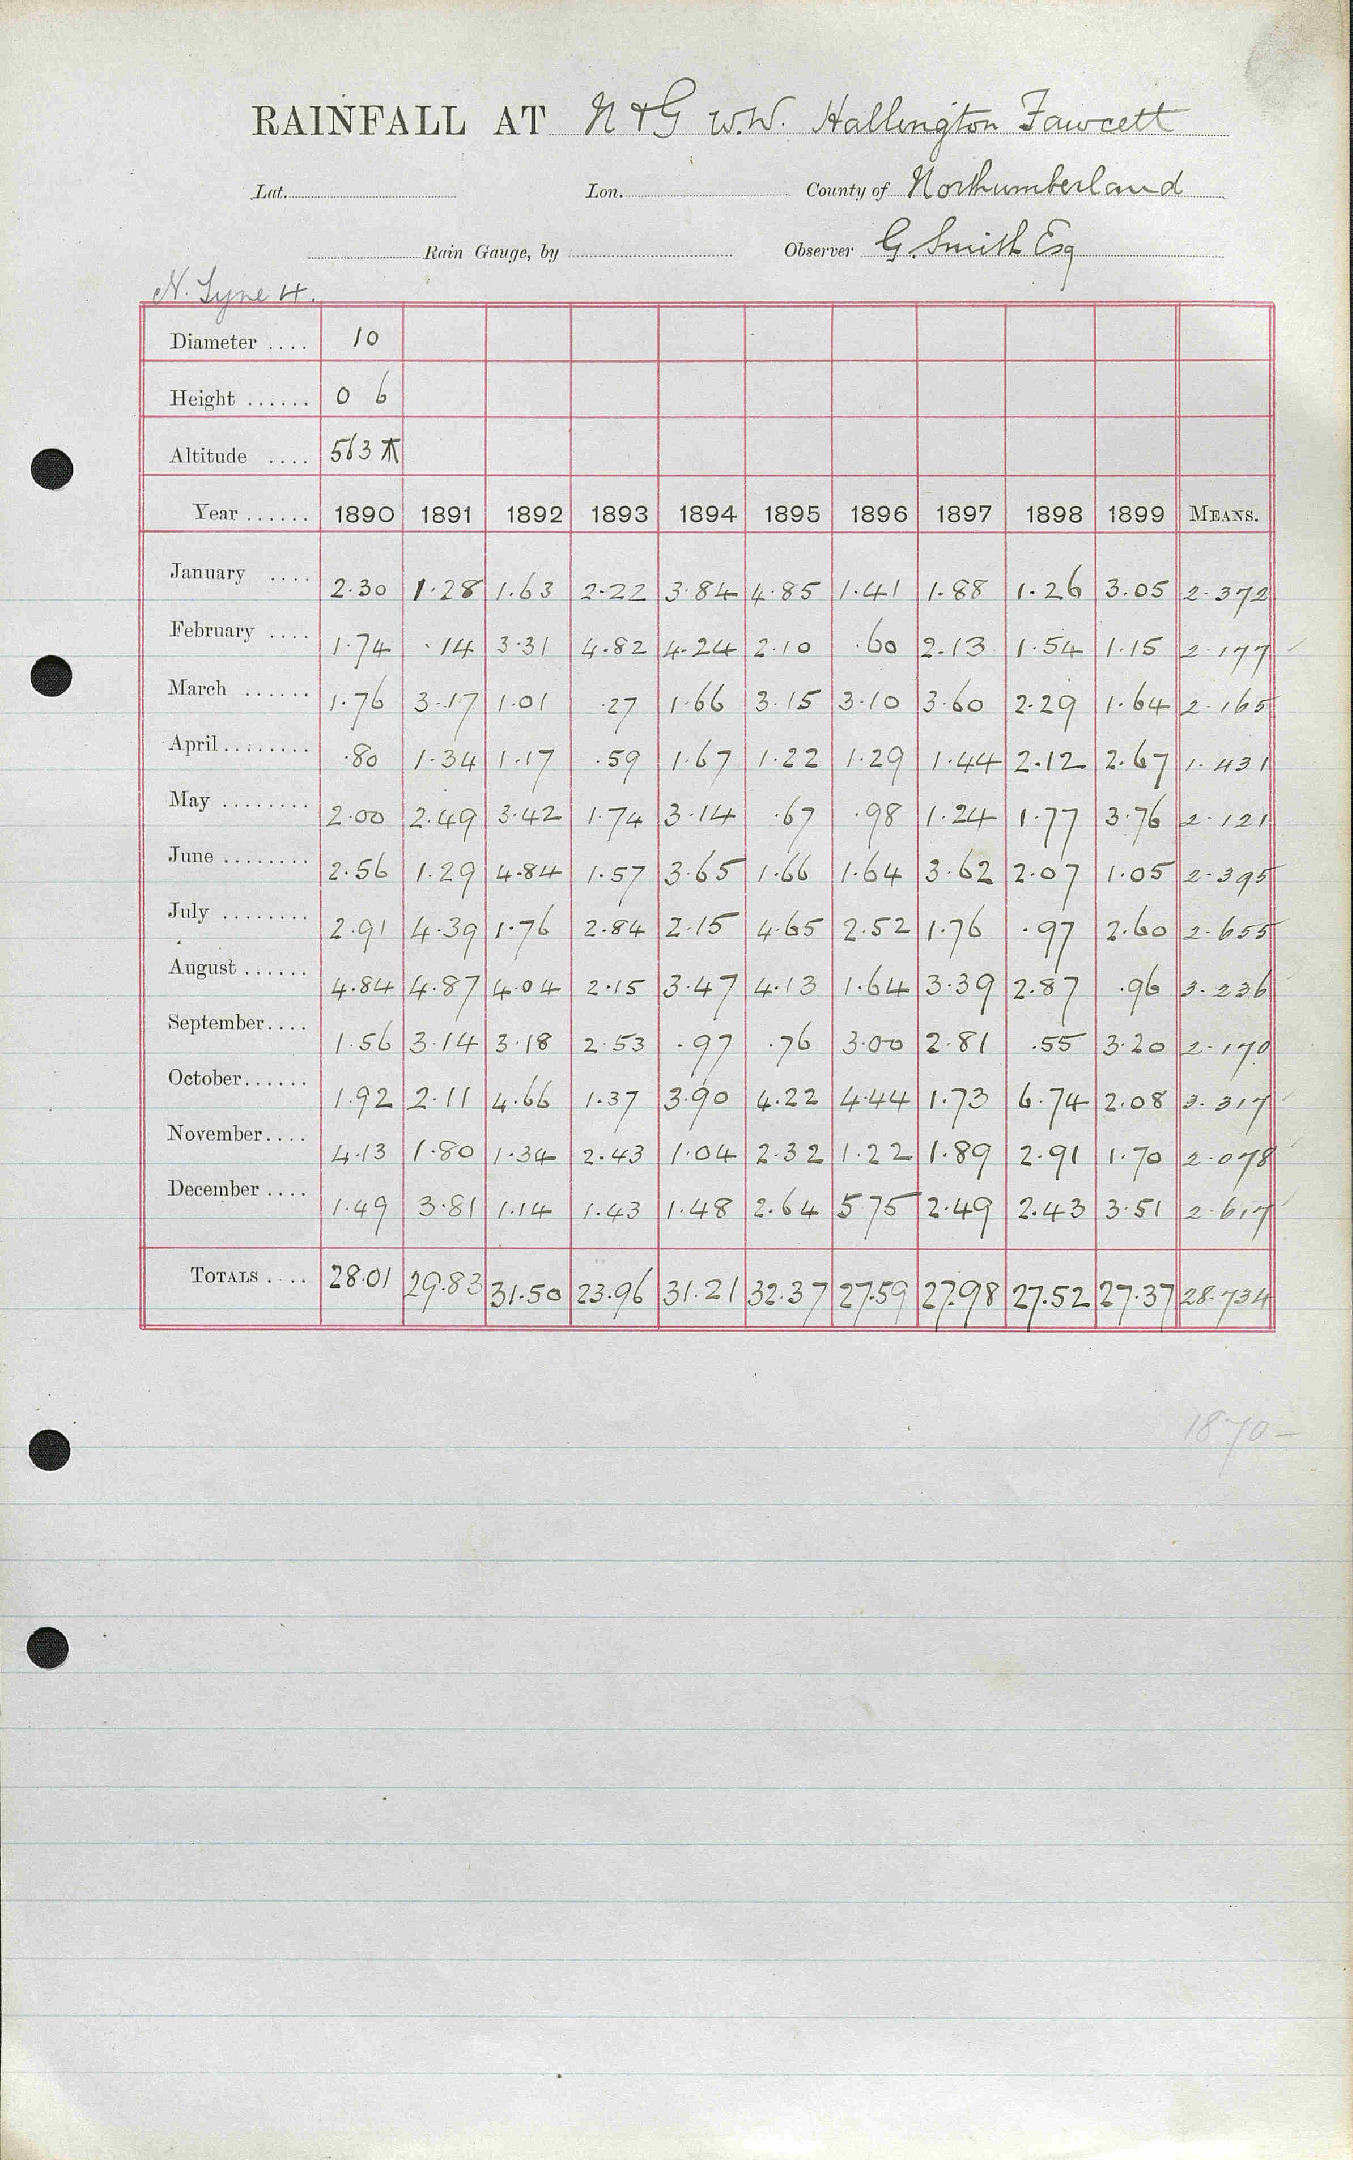 RAINFALL AT N & G W.W. Hallington Fawcett
Lat. Lon. County of Northumberland
Rain Gauge, by Observer G. Smith Esq
N. Tyne 4.
Diameter .... 10
Height ...... 0 6
Altitude .... 563
Year ...... 1890 1891 1892 1893 1894 1895 1896 1897 1898 1899 MEANS.
January .... 2.30 1.28 1.63 2.22 3.84 4.85 1.41 1.88 1.26 3.05 2.372
February .... 1.74 .14 3.31 4.82 4.24 2.10 .60 2.13 1.54 1.15 2.177
March ...... 1.76 3.17 1.01 .27 1.66 3.15 3.10 3.60 2.29 1.64 2.165
April ........ .80 1.34 1.17 .59 1.67 1.22 1.29 1.44 2.12 2.67 1.431
May ........ 2.00 2.49 3.42 1.74 3.14 .67 .98 1.24 1.77 3.76 2.121
June ........ 2.56 1.29 4.84 1.57 3.65 1.66 1.64 3.62 2.07 1.05 2.395
July ........ 2.91 4.39 1.76 2.84 2.15 4.65 2.52 1.76 .97 2.60 2.655
August ...... 4.84 4.87 4.04 2.15 3.47 4.13 1.64 3.39 2.87 .96 3.236
September.... 1.56 3.14 3.18 2.53 .97 .76 3.00 2.81 .55 3.20 2.170
October...... 1.92 2.11 4.66 1.37 3.90 4.22 4.44 1.73 6.74 2.08 3.317
November.... 4.13 1.80 1.34 2.43 1.04 2.32 1.22 1.89 2.91 1.70 2.078
December .... 1.49 3.81 1.14 1.43 1.48 2.64 5.75 2.49 2.43 3.51 2.617
TOTALS .... 28.01 29.83 31.50 23.96 31.21 32.37 27.59 27.98 27.52 27.37 28.734
1870-